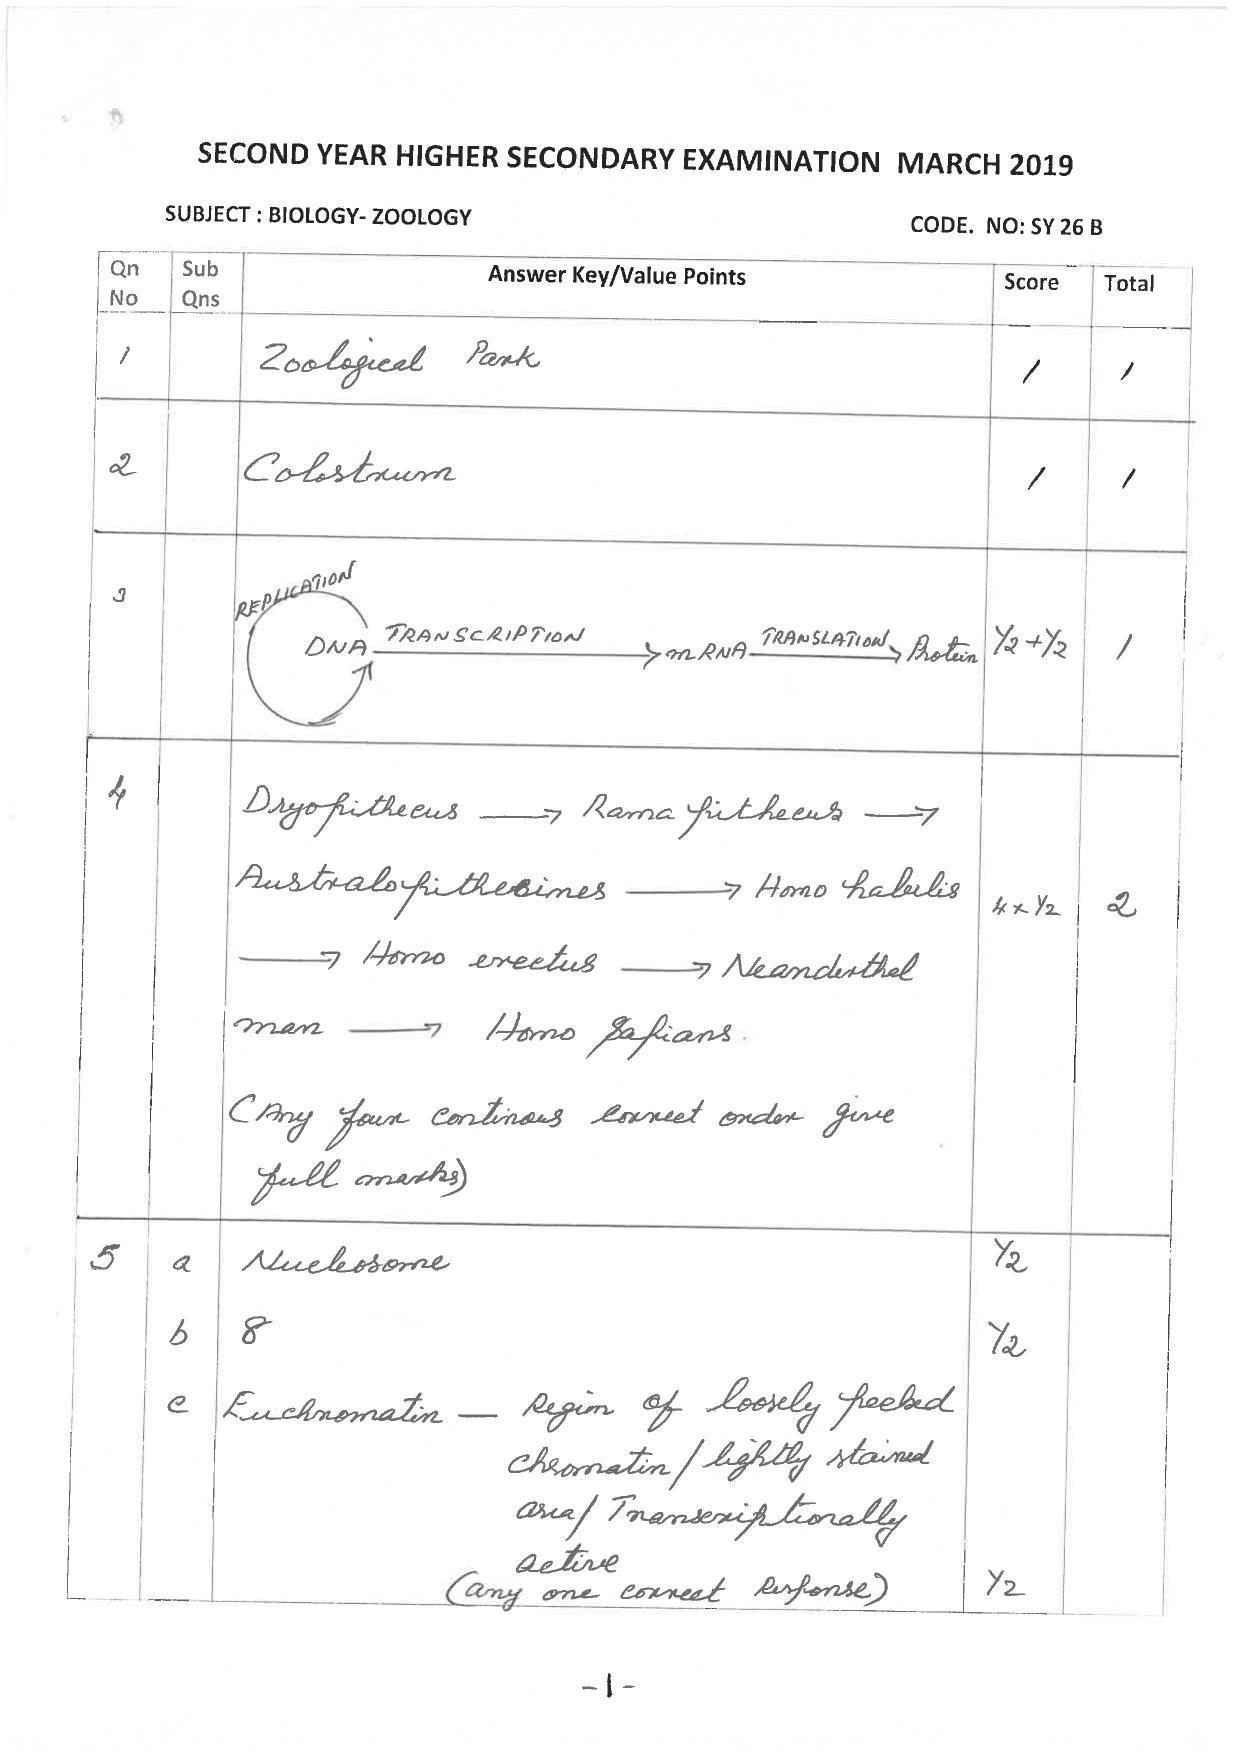 SECOND YEAR HIGHER SECONDARY EXAMINATION MARCH 2019
SUBJECT : BIOLOGY- ZOOLOGY
CODE. NO: SY 26 B
Qn No Sub Qns Answer Key/Value Points Score Total
1 Zoological Park 1 1
2 Colostrum 1 1
3 REPLICATION
DNA TRANSCRIPTION mRNA TRANSLATION Protein 1/2 + 1/2 1
4 Dryopithecus → Ramapithecus →
Australopithecines → Homo habilis 4 x 1/2 2
→ Homo erectus → Neanderthal
man → Homo Sapians.
(Any four continous correct order give
full marks)
5 a Nucleosome 1/2
b 8 1/2
c Euchromatin — Region of loosely packed
chromatin / lightly stained
area / Transcriptionally
active
(any one correct Response) 1/2
-1-